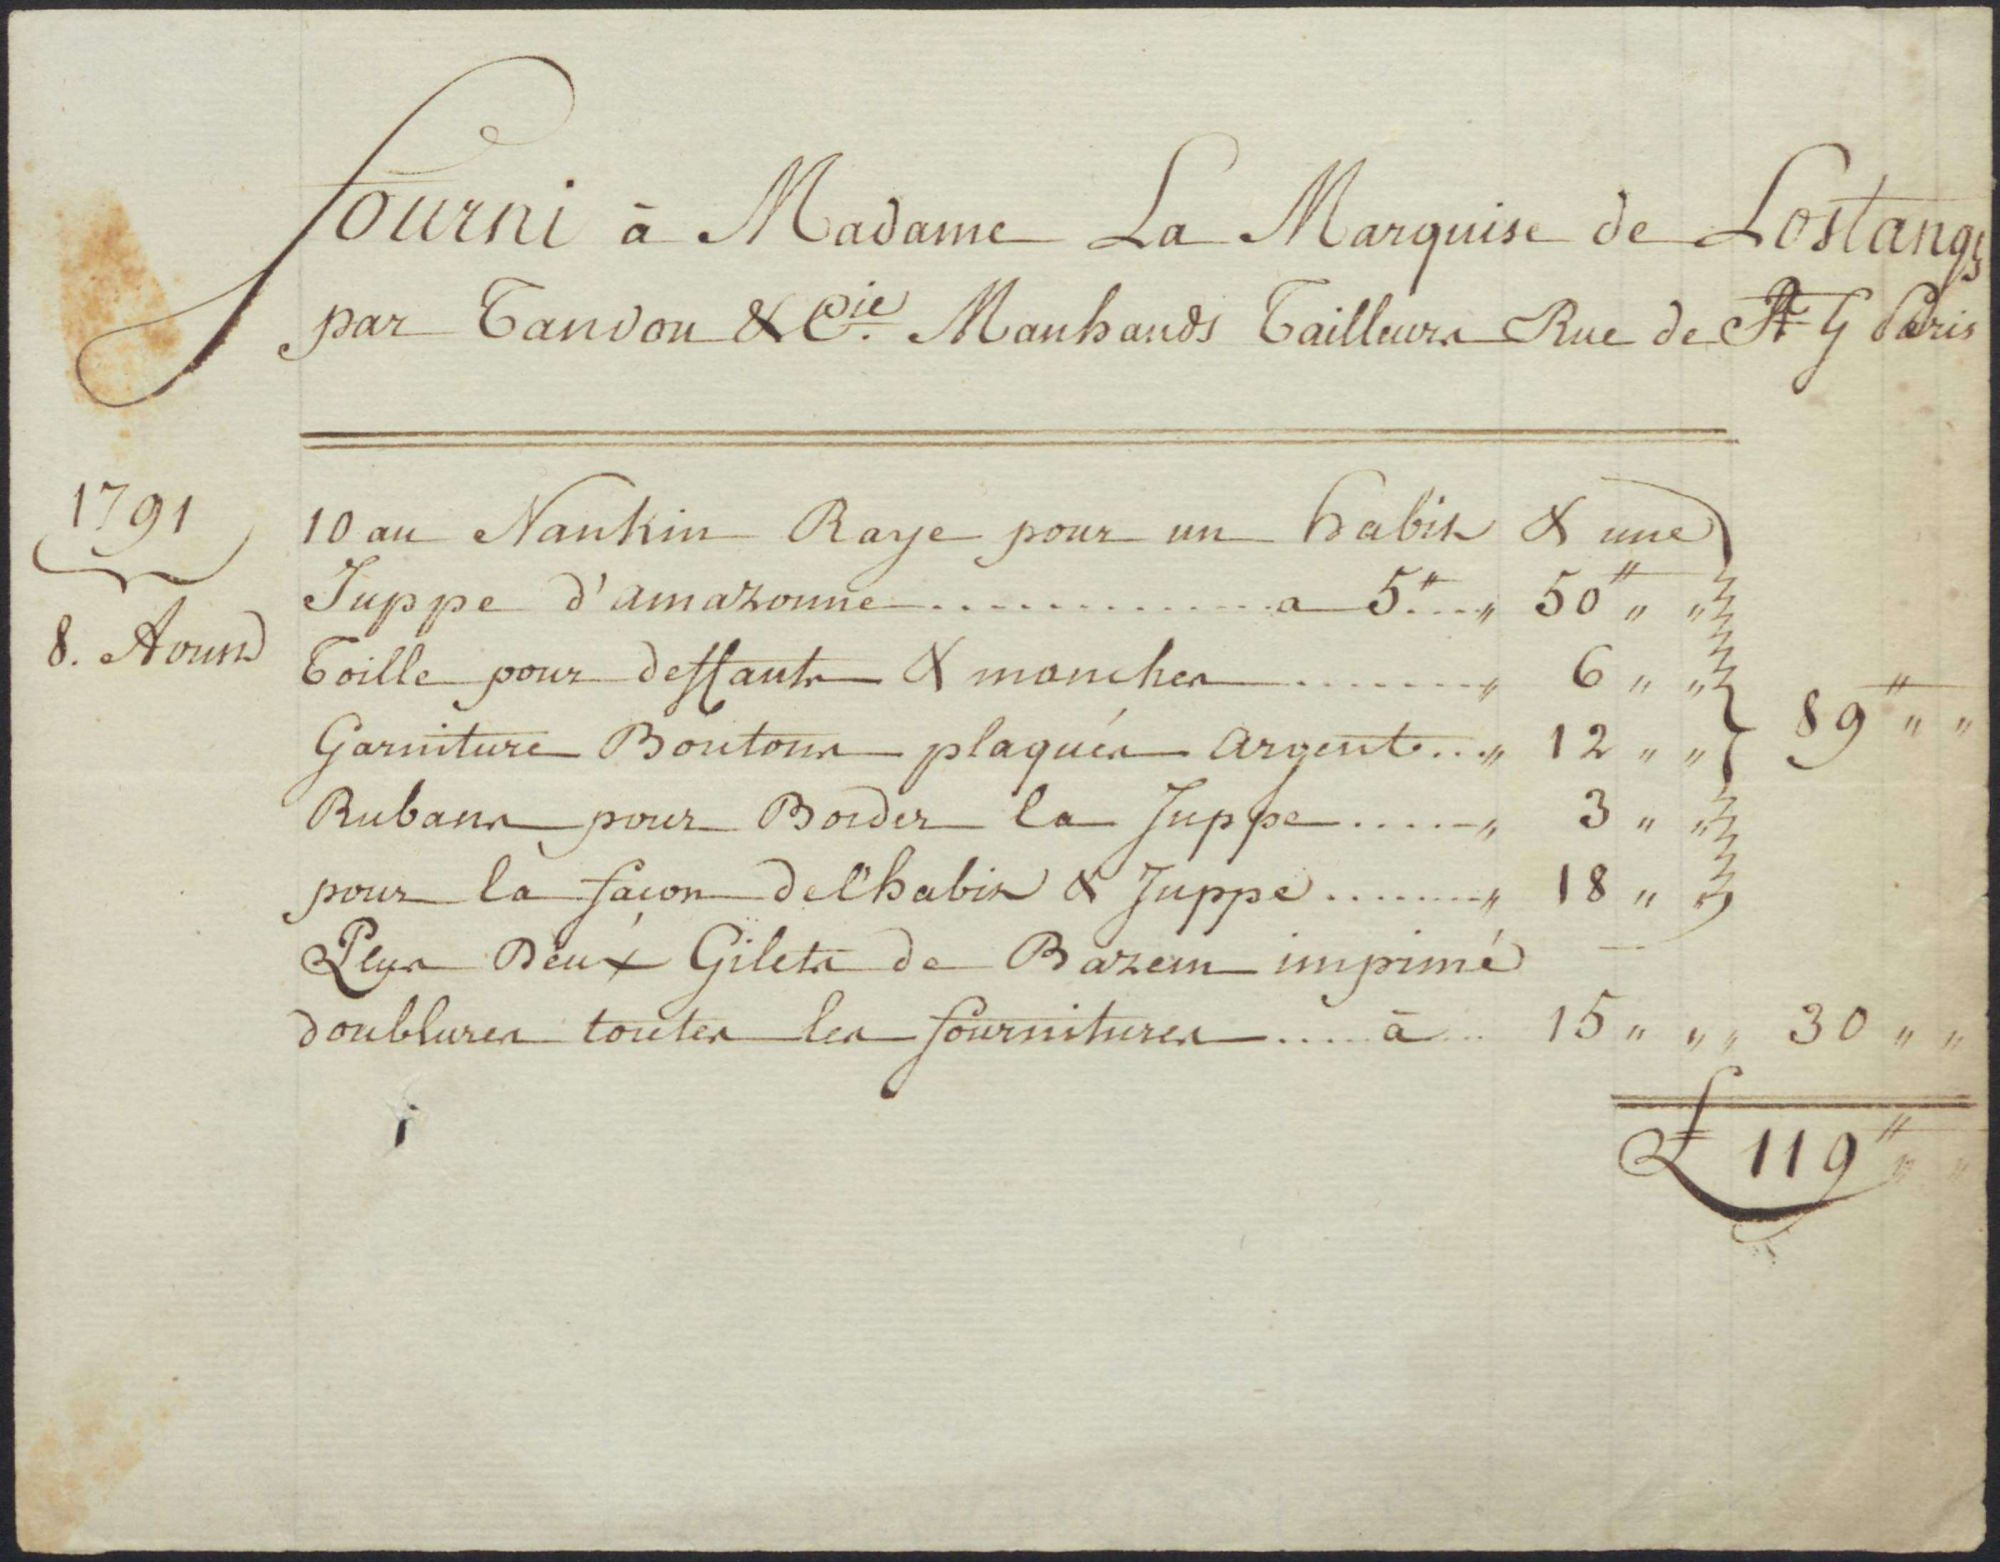 Fourni à Madame La Marquise de Lostangs
par Tandou & Cie. Marchands Tailleurs Rue de Paris
1791
10 au Nankin Raye pour un habit & une
Juppe d'amazonne ............... a 5# .... " 50# " "
8. Aoust
Toille pour dessauts & manches ........ " 6 " "
89# " "
Garniture Boutons plaqués argent ... " 12 " "
Rubans pour Border la Juppe ...... " 3 " "
pour la façon del'habit & Juppe ........ " 18 " "
Plus Deux Gilets de Bazein imprimé
doublures toutes les fournitures ..... à .. 15 " " " 30 " "
£ 119# " "